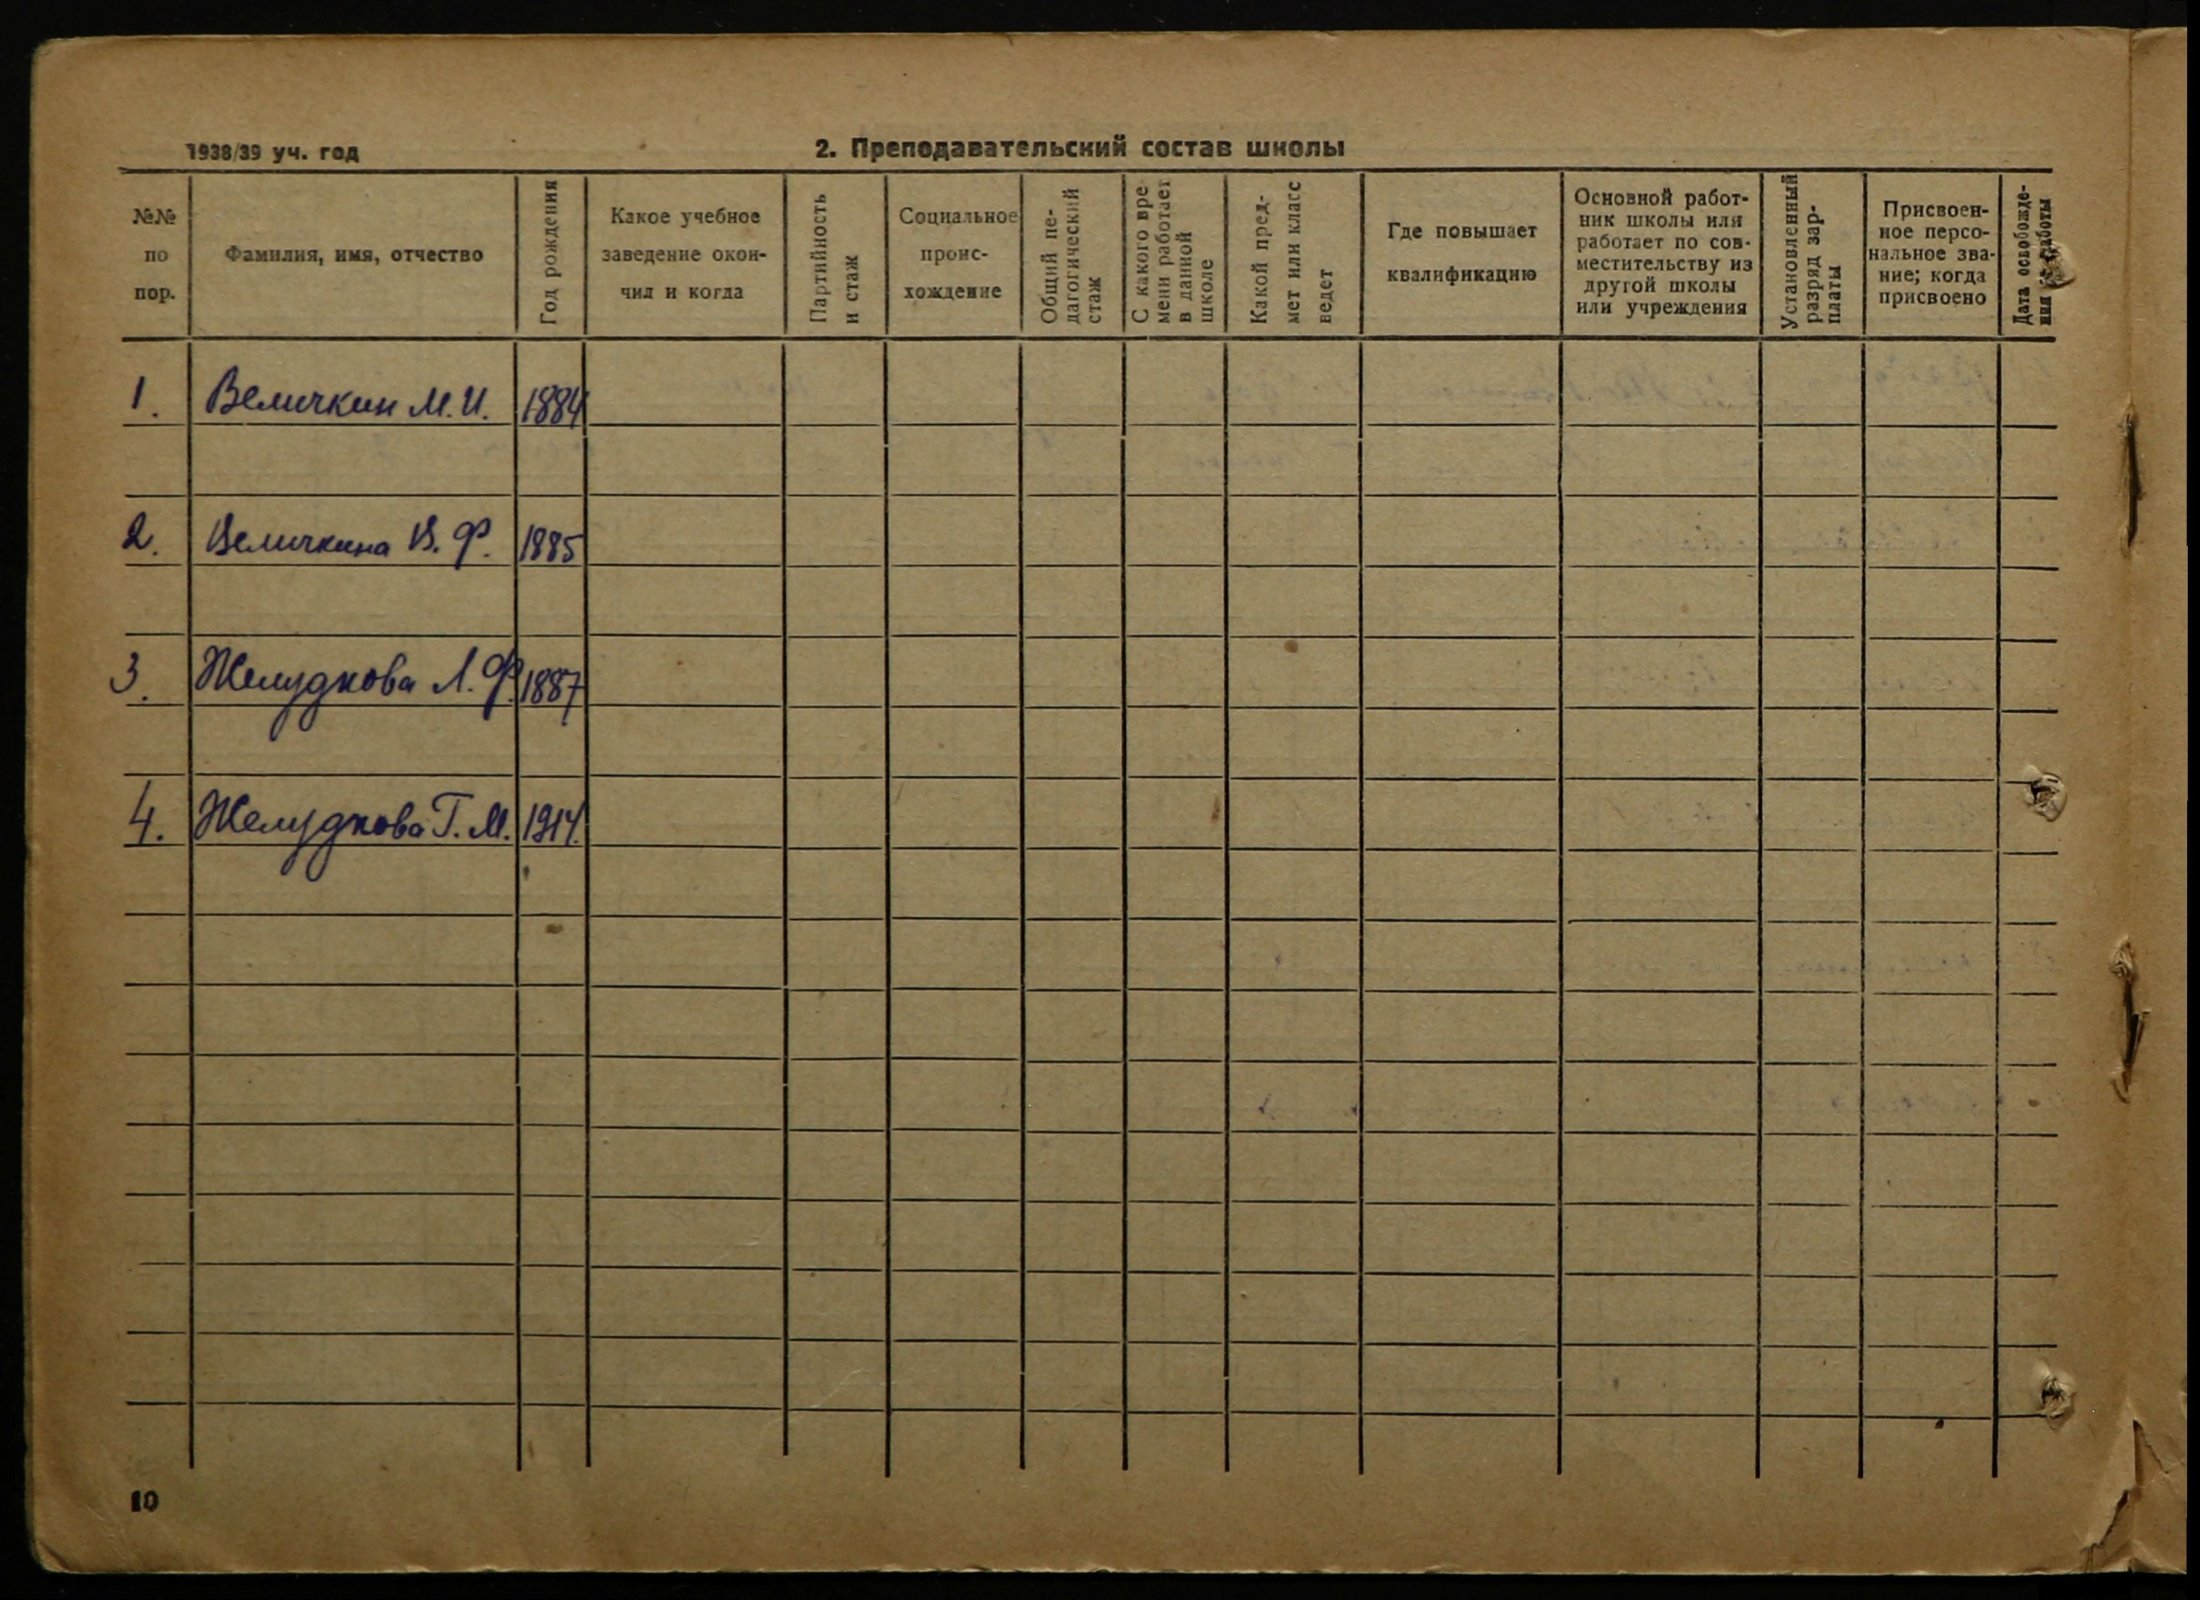 1938/39 уч. год
2. Преподавательский состав школы
№№
по
пор.
Фамилия, имя, отчество
Год рождения
Какое учебное
заведение окон-
чил и когда
Партийность
и стаж
Социальное
проис-
хождение
Общий пе-
дагогический
стаж
С какого вре-
мени работает
в данной
школе
Какой пред-
мет или класс
ведет
Где повышает
квалификацию
Основной работ-
ник школы или
работает по сов-
местительству из
другой школы
или учреждения
Установленный
разряд зар-
платы
Присвоен-
ное персо-
нальное зва-
ние; когда
присвоено
Дата освобожде-
ния работы
1. Величкин М. И. 1884
2. Величкина В. Ф. 1885
3. Желудкова Л. Ф. 1887
4. Желудкова Г. М. 1914.
10